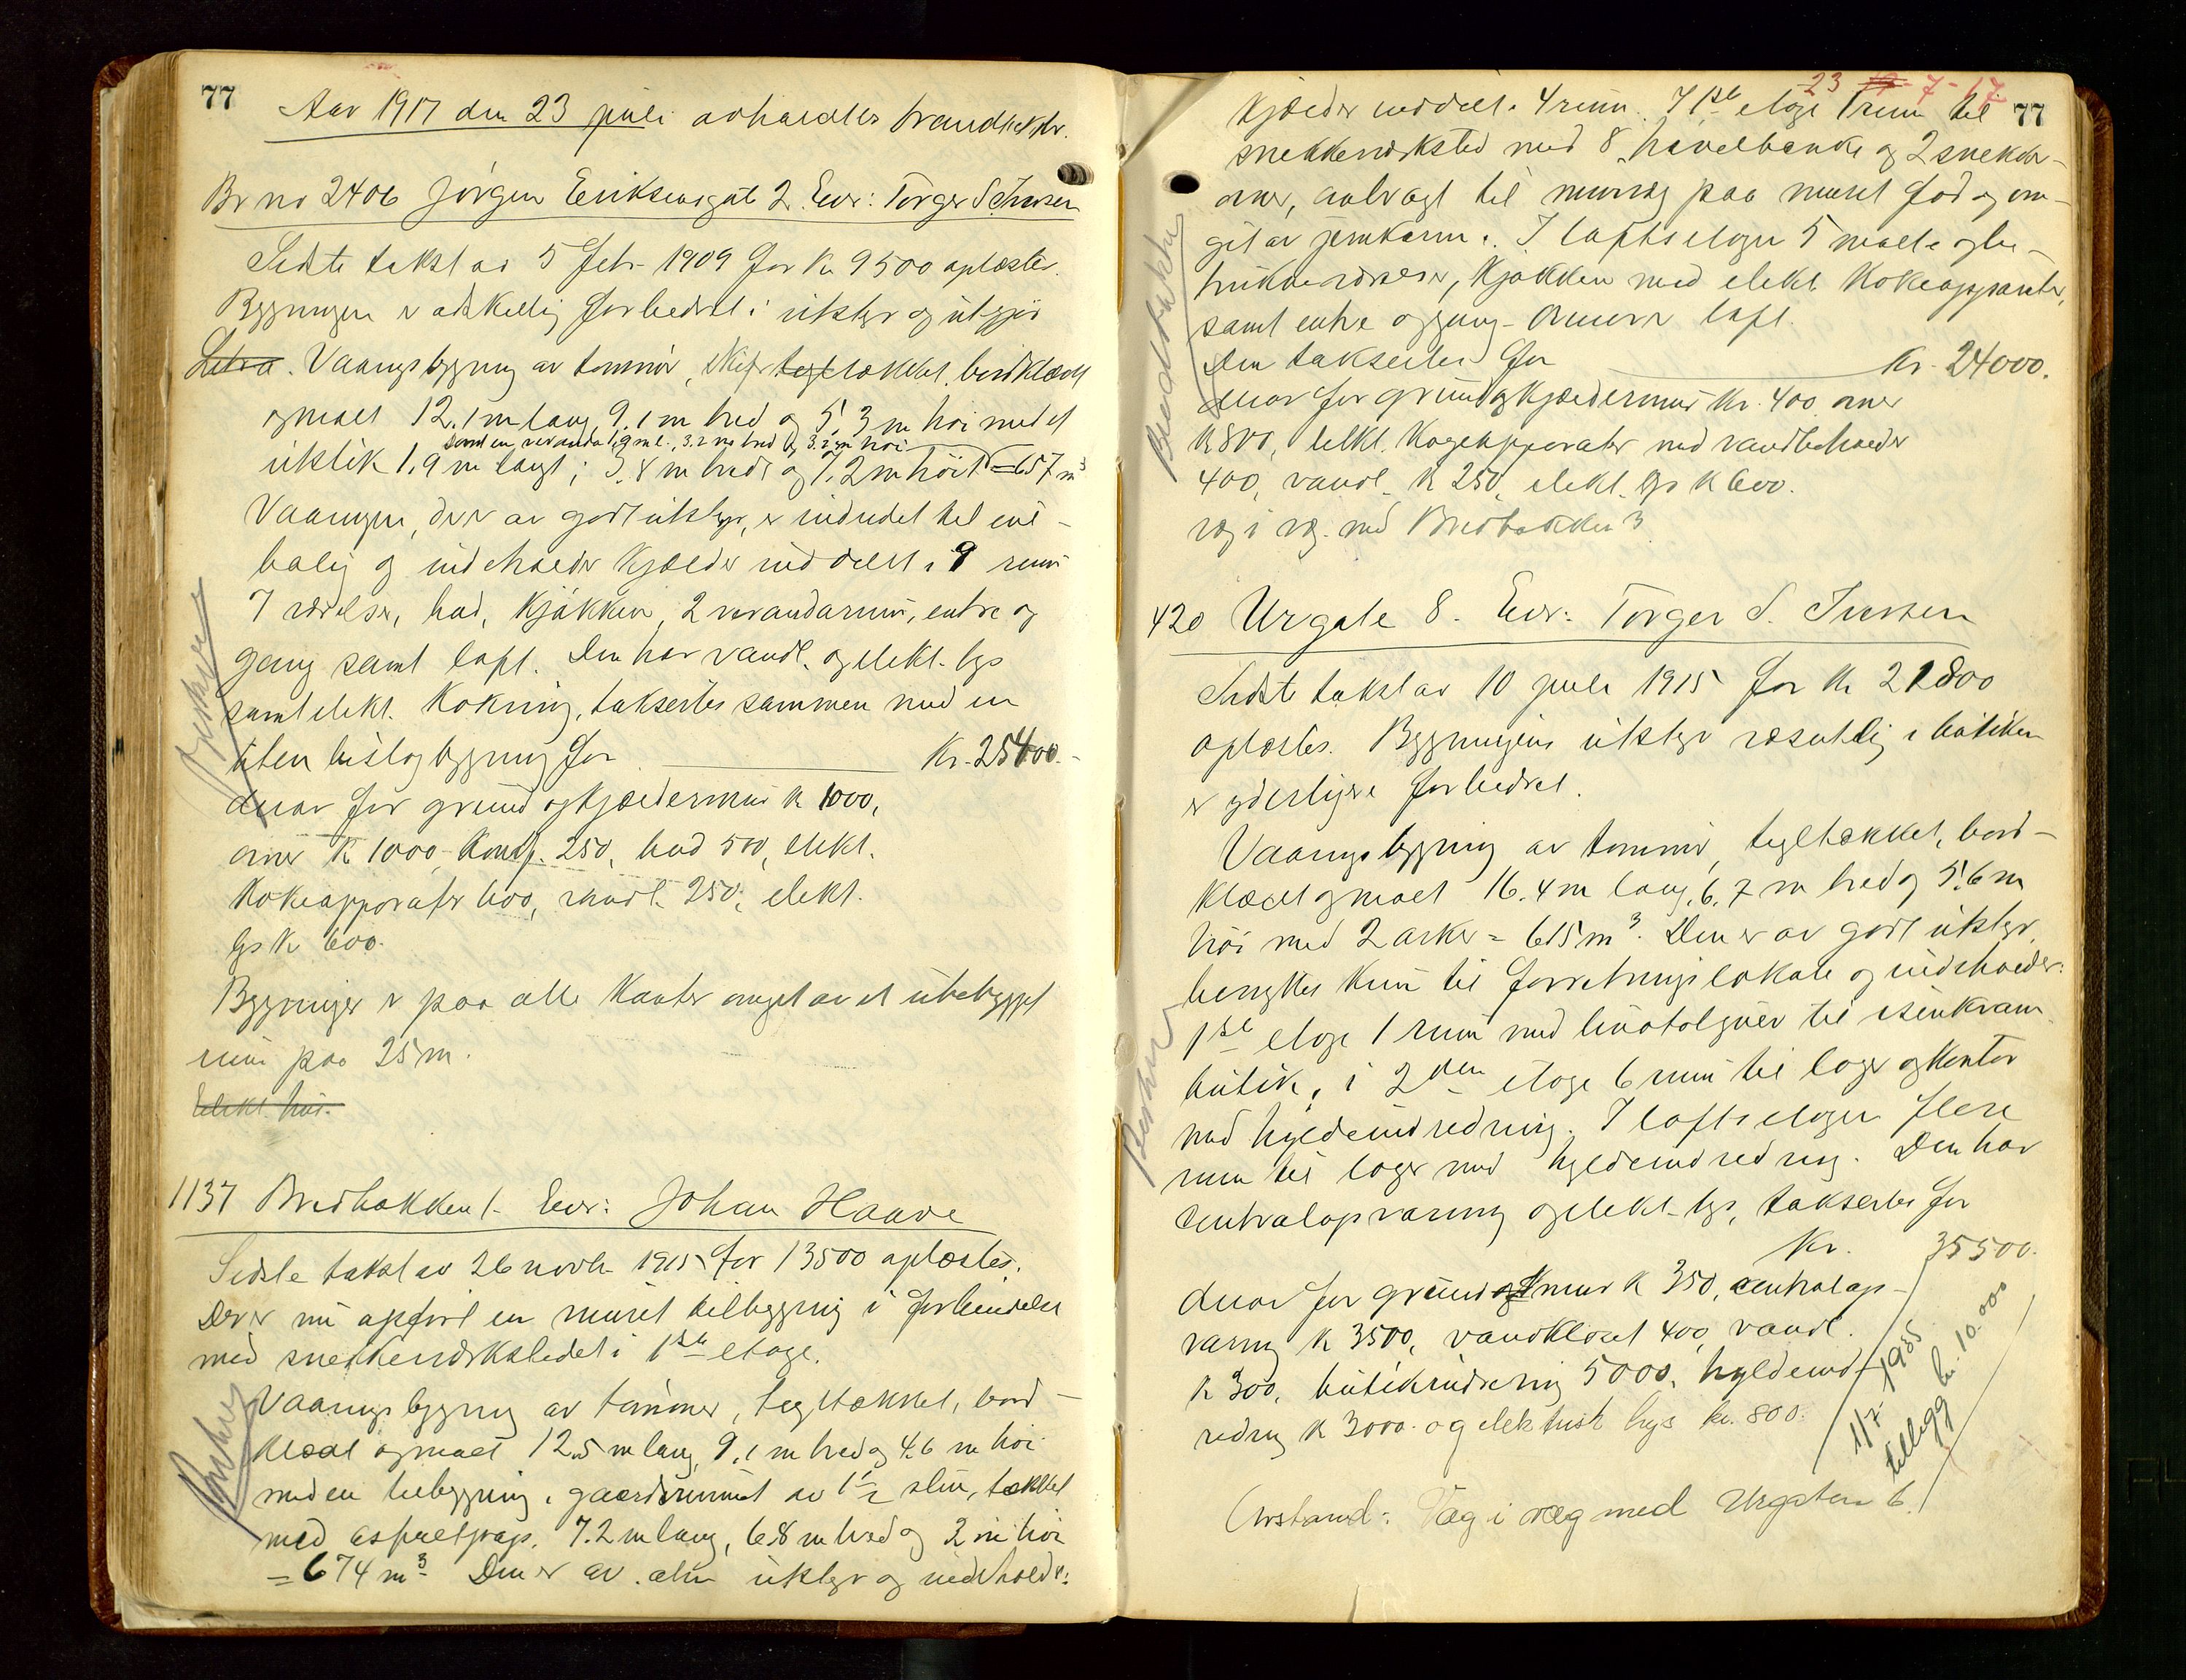 77
Aar 1917 den 23 juli avholdtes
Br no 2406 Jørgen Eriksensgt 2 Eier: Torger S. Iversen
Sidste takst av 5 febr 1909 for Kr 9500 oplæstes.
Bygningen er adskillig forbedret i utstyr og utgjør
Litra. Vaaningsbygning av tømmer, skifer tegltækket, bordklædt
og maalt 12.1 m lang, 9.1 m bred og 5.3 m høi med et
samt en veranda 1,9 m l., 3.2 m bred og 3.2 m høi
utstik 1.9 m langt, 3.8 m bredt og 7.2 m høit = 657 m³
Vaaningen, der er av godt utstyr, er indredet til ene-
bolig og indeholder kjælder inddelt i 9 rum
7 værelser, bad, kjøkken, 2 verandarum, entre og
gang samt loft. Den har vandl. og elekt. lys
samt elekt. kokning, takseres sammen med en
liten bislagbygning for Kr. 25400.-
derav for grund og kjældermur K 1000,
ovner K 1000, 250, bad 500, elekt.
kokeapparater 600, vandl. 250, elekt.
lys K 600.
Bygningen er paa alle kanter omgit av et ubebygget
rum paa 25 m.
Elekt. hus.
1137 Bredbakken 1. Eier: Johan Haave
Sidste takst av 26 novb 1915 for 13500 oplæstes.
Der er nu opført en muret tilbygning i forbindelse
med snekkerverkstedet i 1ste etage.
Vaaningsbygning av tømmer, tegltækket, bord-
klædt og maalt 12.5 m lang, 9.1 m bred og 4.6 m høi
med en tilbygning i gaardsrummet av 1/2 sten, tækket
med asfaltpap. 7.2 m lang, 6.8 m bred og 3 m høi
= 674 m³. Den er av alm utstyr og indeholder:
23 7-17
77
Kjælder inddelt i 4 rum. I 1ste etage 1 rum til
snekkerverksted med 8 høvelbænke og 2 snekker-
ovner, anbragt til murvæg paa muret fod og om-
git av jernkarm. I loftsetagen 5 malte og be-
trukne værelser, kjøkken med elekt. kokeapparater,
samt entre og gang. Ovenover loft.
Den takseres for Kr. 24000.
derav for grund og kjældermur Kr. 400, ovner
K 800, elekt. kogeapparater med vandbeholder
400, vandl. K 250, elekt. lys K 600.
væg i væg med Bredbakken 3
420 Urgate 8. Eier: Torger S. Iversen
Sidste takst av 10 juli 1915 for Kr 21800
oplæstes. Bygningens utstyr væsentlig i butiken
er yderligere forbedret.
Vaaningsbygning av tømmer, tegltækket, bord-
klædt og maalt 16.4 m lang, 6.7 m bred og 5.6 m
høi med 2 arker = 615 m³. Den er av godt utstyr,
benyttes kun til forretningslokale og indeholder:
1ste etage 1 rum med linoleumgulv til isenkram
butik, i 2den etage 6 rum til lager og kontor
med hyldeindredning. I loftsetagen flere
rum til lager med hyldeindredning. Den har
centralopvarming og elekt. lys, takseres for
Kr. 35500.
derav for grundmur K 350, centralop-
varming K 3500, vandkloset 400, vandl.
K 300, butikindredning 5000, hyldeind-
redning K 3000. og elektrisk lys kr. 800.
1/7 1935
tillegg kr. 10.000
Avstand: Væg i væg med Urgaten 6.